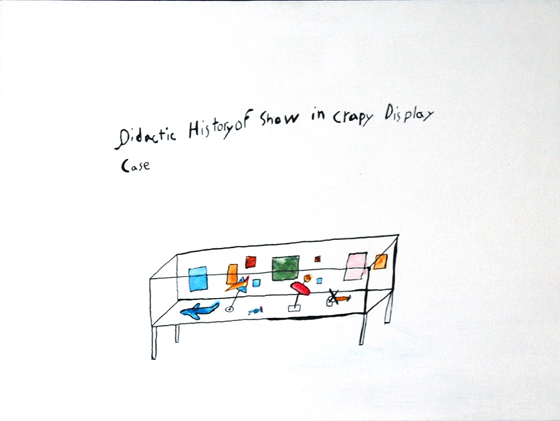 Didactic History of Show in Crapy Display
Case